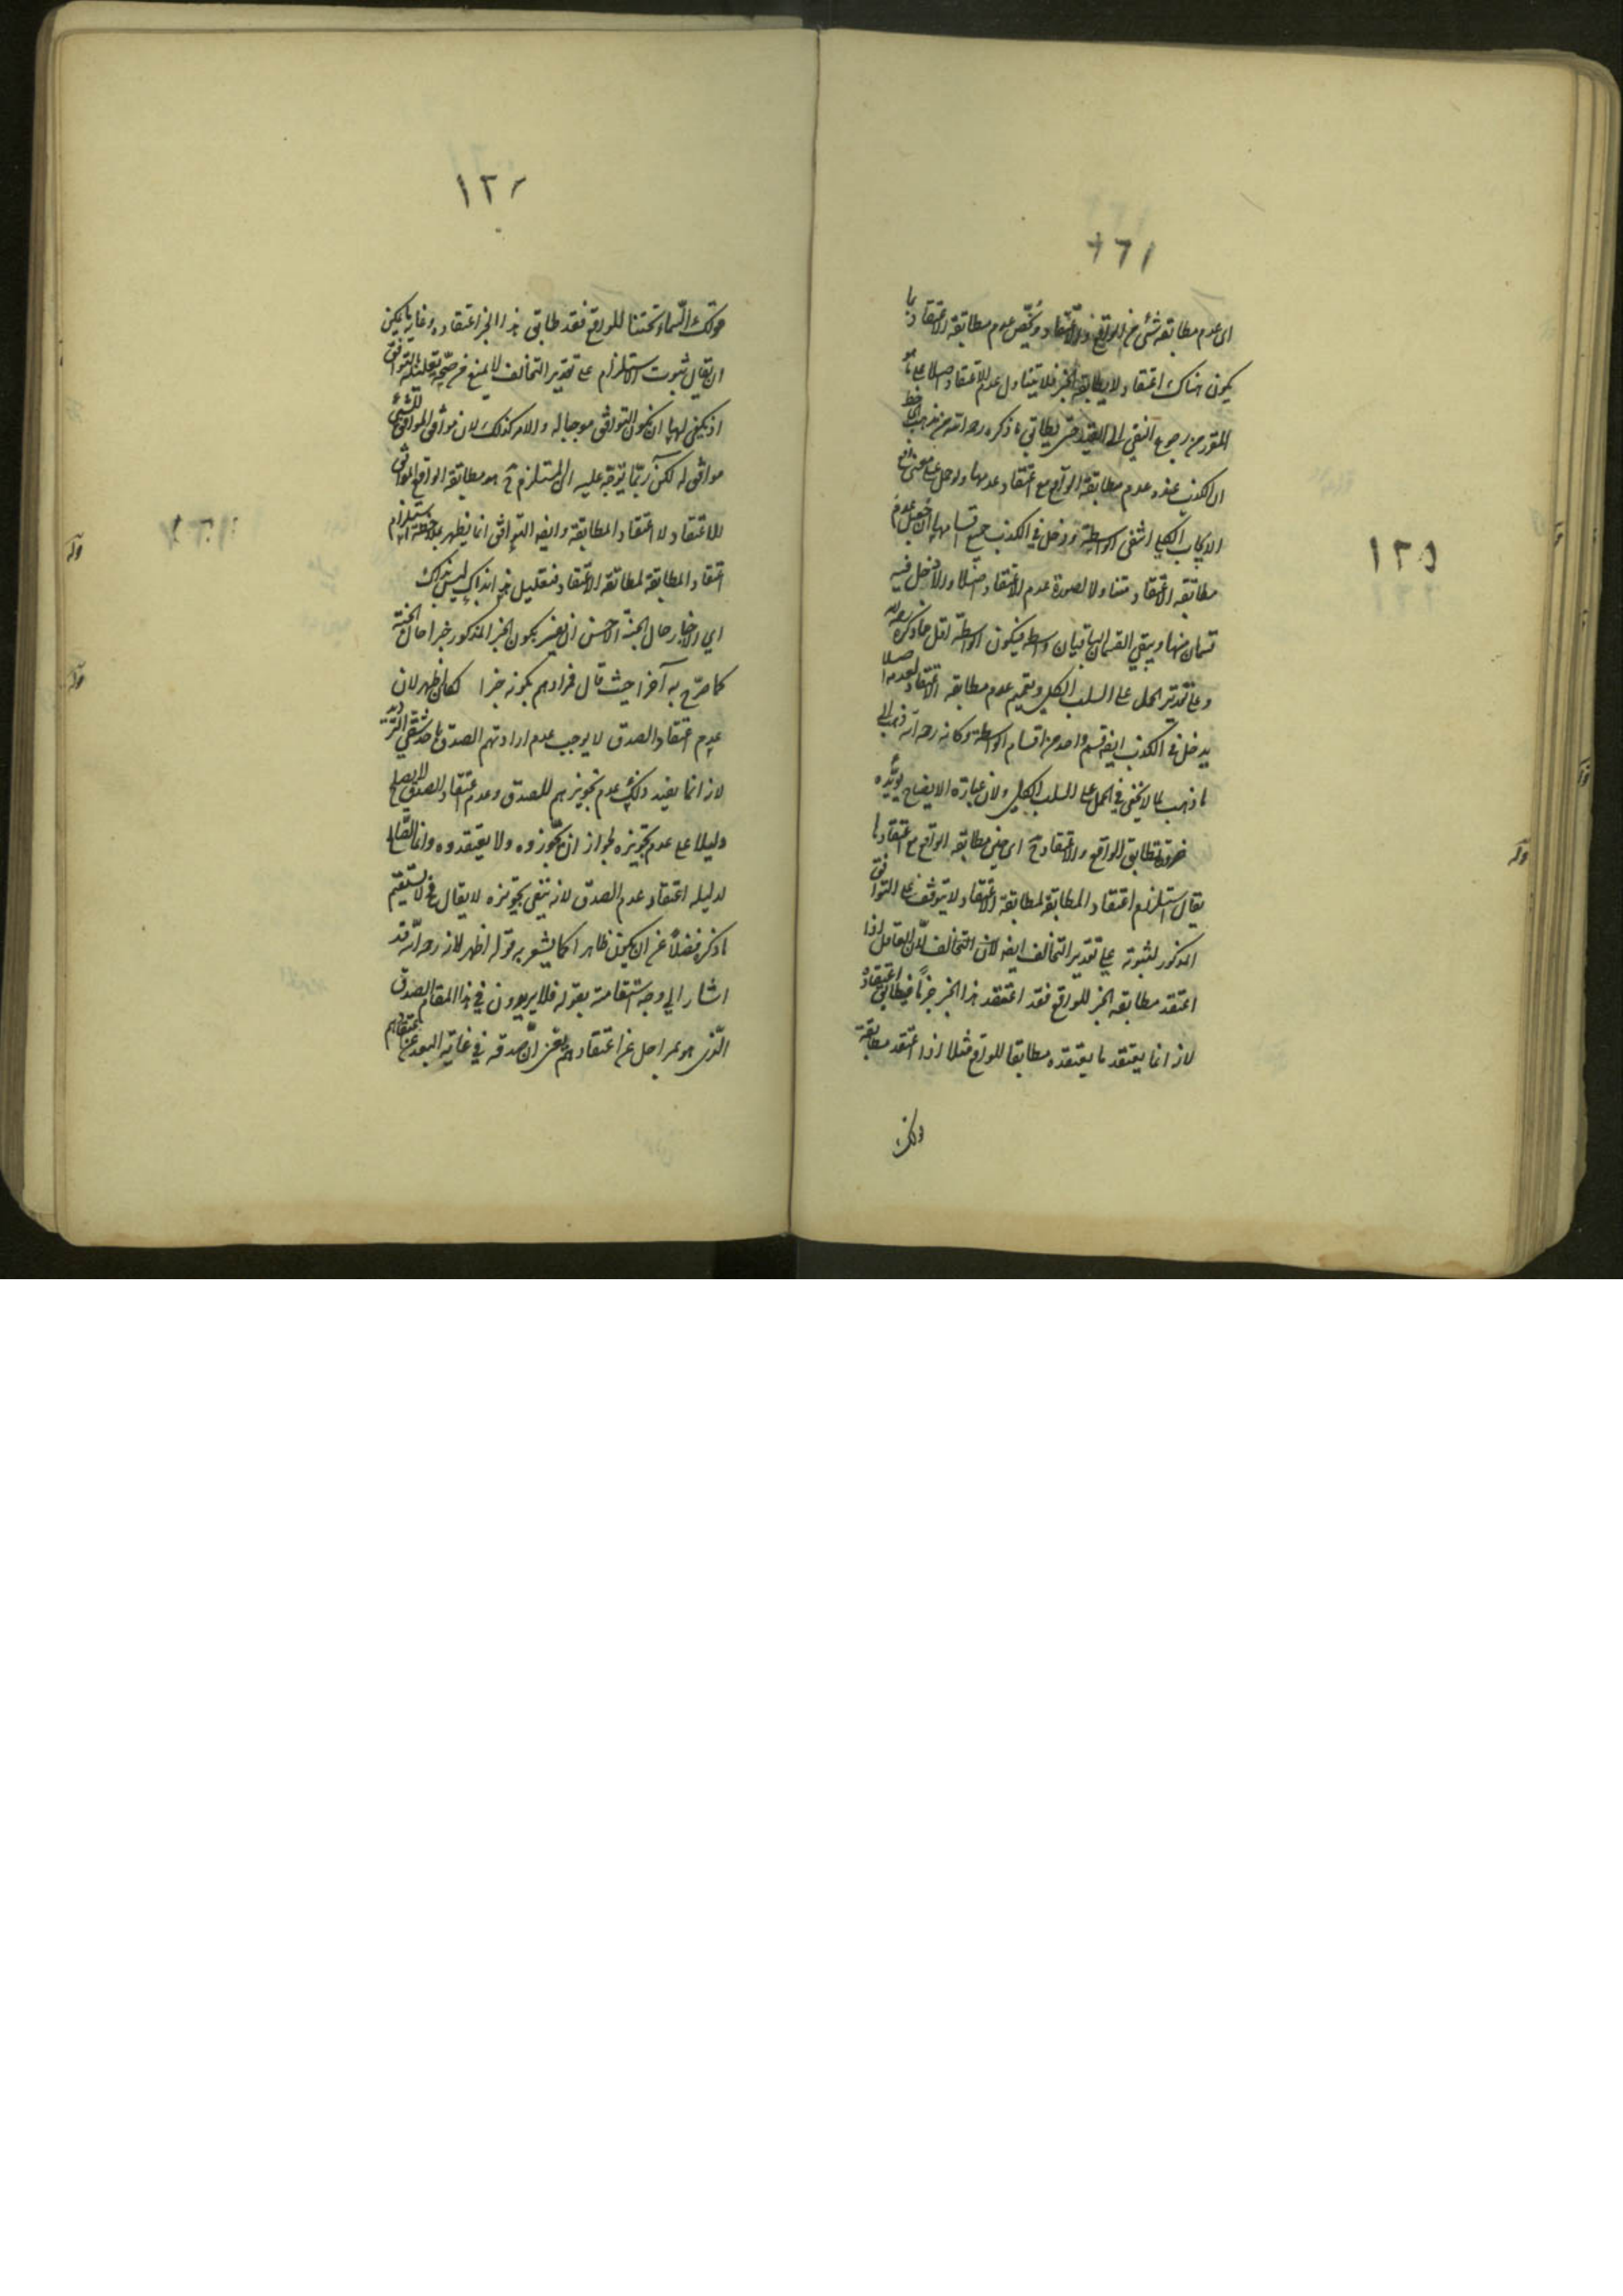 ١٢٥
اى عدم مطابقة شئ من الواقع والاعتقاد ويخص عدم مطابقة الاعتقاد بما
يكون هناك اعتقاد ولا يطابقه الخبر فلا يتناول عدم الاعتقاد اصلا على ما هو
المقرر من رجوع النفى الى القيد حتى يطابق ما ذكره رحمه الله من مذهب الجاحظ
ان الكذب عنده عدم مطابقة الواقع مع اعتقاد عدمها ولو حمل على معنى رفع
الايجاب الكلى انتفى الواسطة ودخل في الكذب جميع اقسامها ان جعل عدم
مطابقة الاعتقاد متناولا لصورة عدم الاعتقاد اصلا والا دخل فيه
قسمان منها ويبقى القسمان الباقيان واسطة فيكون الواسطة اقل مما ذكره رحمه الله
وعلى تقدير الحمل على السلب الكلى وتعميم عدم مطابقة الاعتقاد لعدمه اصلا
يدخل في الكذب ايضا قسم واحد من اقسام الواسطة وكانه رحمه الله ذهب الى
ما ذهب لما لا يخفى في الحمل على السلب الكلى ولان عبارة الايضاح يؤيده
ضرورة تطابق الواقع والاعتقاد ح اى حين مطابقة الواقع مع اعتقادها
يقال استلزام اعتقاد المطابقة لمطابقة الاعتقاد لا يتوقف على التوافق
المذكور لثبوته على تقدير التخالف ايضا لان التخالف لان العاقل اذا
اعتقد مطابقة الخبر للواقع فقد اعتقد هذا الخبر جزما فيطابق اعتقاده
لانه انما يعتقد ما يعتقده مطابقا للواقع مثلا اذا اعتقد مطابقة
قولك
قولك السماء تحتنا للواقع فقد طابق هذا الخبر اعتقاده وغاية ما يمكن
ان يقال ثبوت الاستلزام على تقدير التخالف لا يمنع من صحة تعليله بالتوافق
اذ يكفى لها ان يكون التوافق موجبا له والامر كذلك لان موافق الموافق للشئ
موافق له لكن ربما يتوجه عليه ان المستلزم ح هو مطابقة الواقع الموافق
للاعتقاد لا اعتقاد المطابقة وايضا التوافق انما يظهر بملاحظة استلزام
اعتقاد المطابقة لمطابقة الاعتقاد فتعليل هذا بذاك ليس بذاك
اى الاخبار حال الجنة الاحسن ان يفسر بكون الخبر المذكور خبرا حال الجنة
كما صرح به آخرا حيث قال فمرادهم بكونه خبرا كان اظهر لان
عدم اعتقاد الصدق لا يوجب عدم ارادتهم الصدق باحد شقى الترديد
لانه انما يفيد ذلك عدم تجويزهم للصدق وعدم اعتقاد الصدق لا يصلح
دليلا على عدم تجويزه لجواز ان يجوزوه ولا يعتقدوه وانما الصالح
لدليله اعتقاد عدم الصدق لانه ينفى تجويزه لا يقال فح لا يستقيم
ما ذكره فضلا عن ان يكون ظاهرا كما يشعر به قوله اظهر لانه رحمه الله قد
اشار الى وجه استقامته بقوله فلا يريدون في هذا المقام الصدق
الذى هو بمراحل عن اعتقادهم يعنى ان صدقه في غاية البعد عن اعتقادهم